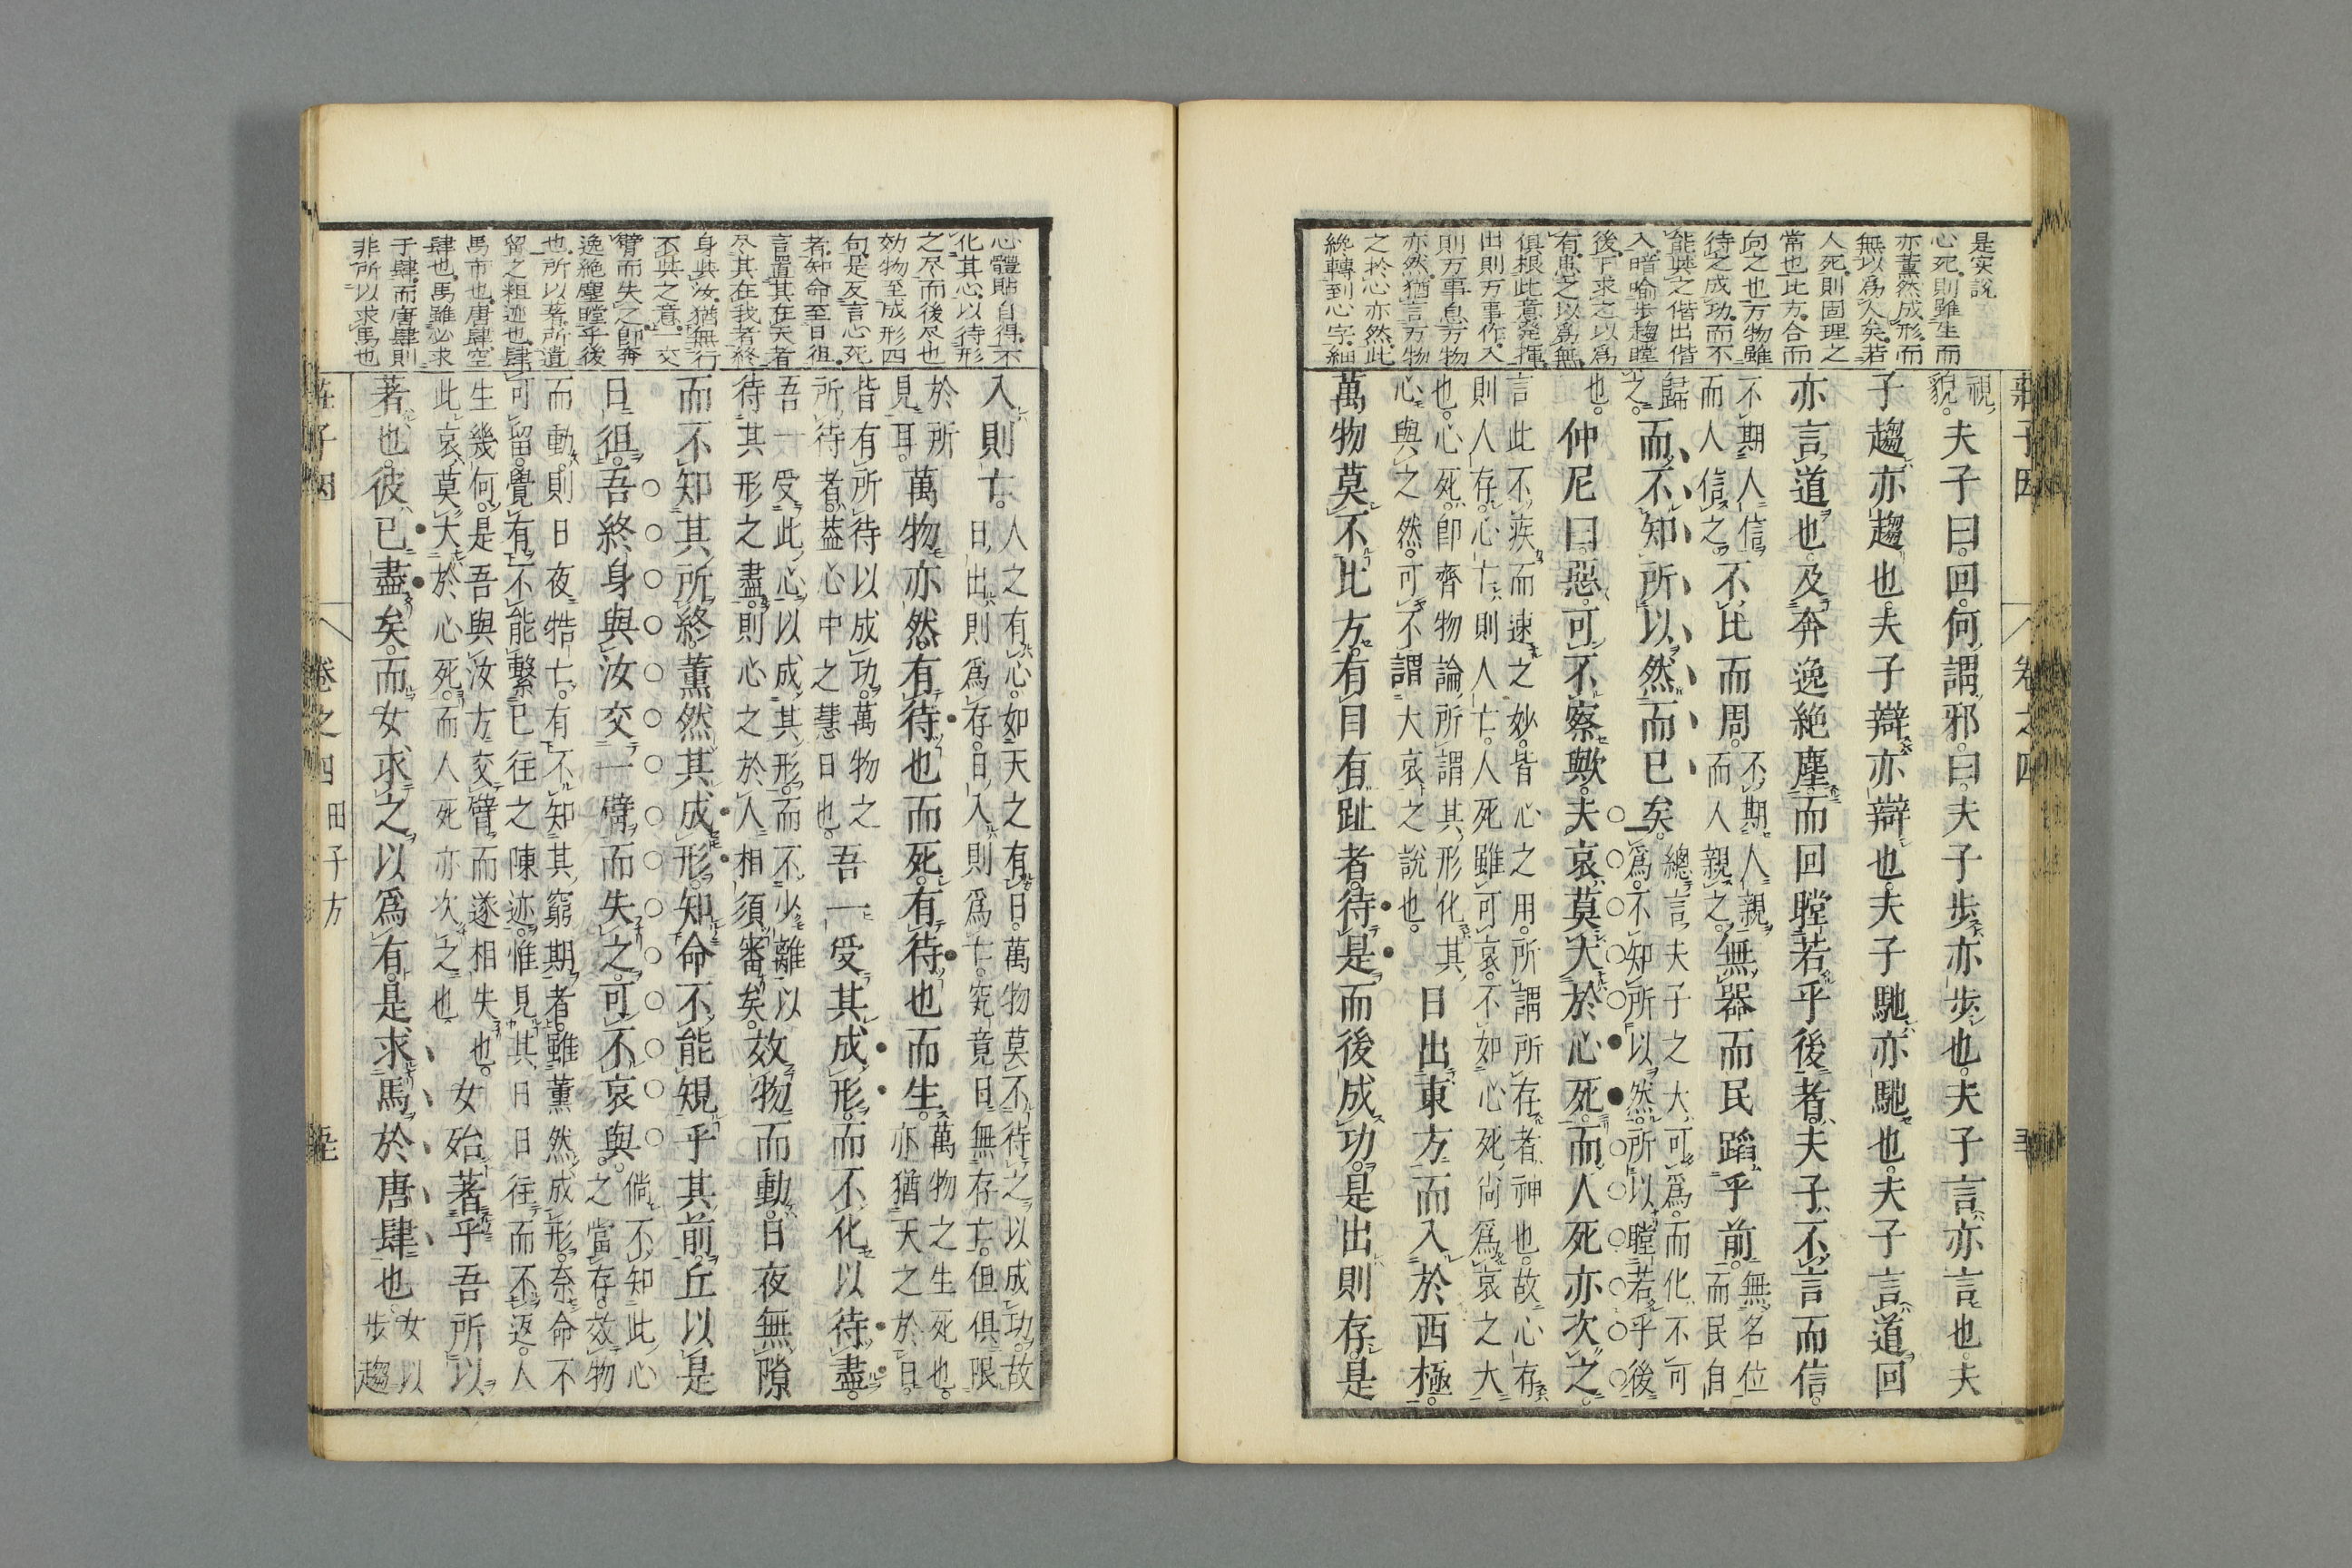 是実說
心死則雖生而
亦薰然成形而
無以爲人矣若
人死則固理之
常也比方合而
向之也万物雖
待之成功而不
能與之偕出偕
入暗喻步趨瞠
後下求之以爲
俱根此意發揮
出則万事作入
則万事息万物
亦然猶言万物
之於心亦然此
終轉到心字細
莊子因 卷之四
視
貌。夫子曰。回。何謂邪。曰。夫子步亦步也。夫子言亦言也。夫
子趨亦趨也。夫子辯亦辯也。夫子馳亦馳也。夫子言道回
亦言道也。及奔逸絕塵。而回瞠若乎後者。夫子不言而信。
不期人信
而人信之。不比而周。不期人親
而人親之。無器而民蹈乎前。無名位
而民自
歸
之。而不知所以然而已矣。總言夫子之大可爲。而化不可
爲。不知所以然。所以瞠若乎後
也。仲尼曰。惡。可不察歟。夫哀莫大於心死。而人死亦次之。
言此不疾而速之妙。皆心之用。所謂所存者神也。故心存
則人存。心亡則人亡。人死雖可哀。不如心死尚爲哀之大
也。心死。卽齊物論所謂其形化其
心與之然。可不謂大哀之說也。日出東方而入於西極。
萬物莫不比方。有目有趾者。待是而後成功。是出則存。是
心體貼自得不
化其心以待形
之尽而後尽也
効物至成形四
句是反言心死
者知命至日徂
言置其在天者
尽其在我者終
身與汝猶無行
不與之意一交
臂而失之即奔
逸絶塵瞠乎後
也所以著所遺
留之粗迹也肆
馬市也唐肆空
肆也馬雖必求
于肆而唐肆則
非所以求馬也
入則亡。人之有心。如天之有日。萬物莫不待之以成功。故
日出則爲存。日入則爲亡。究竟日無存亡。但俱限
於所
見耳。萬物亦然。有待也而死。有待也而生。萬物之生死也。
亦猶天之於日。
皆有所待以成功。萬物之
所待者。蓋心中之慧日也。吾一受其成形。而不化以待盡。
吾一受此心。以成其形。而不少離以
待其形之盡。則心之於人相須審矣。效物而動。日夜無隙
而不知其所終。薰然其成形。知命不能規乎其前。丘以是
日徂。吾終身與汝交一臂而失之。可不哀與。倘不知此心
之當存。效物
而動。則日夜牿亡。有不知其窮期者。雖薰然成形。奈命不
可留。覺有不能繫已往之陳迹。惟見其日日往而不返。人
生幾何。是吾與汝方交臂而遂相失也。
此哀莫大於心死。而人死亦次之也。女殆著乎吾所以
著也。彼已盡矣。而女求之以爲有。是求馬於唐肆也。女以
步趨
莊子因 卷之四 田子方